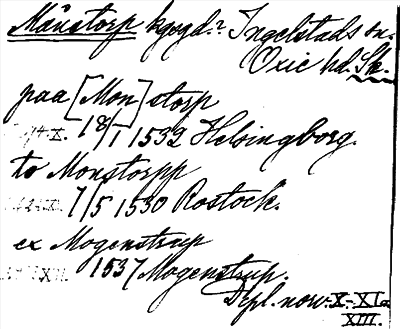 Månstorp kgsgd.? Ingelstads sn.
Oxie hd. Sk.
paa [Mon]storp
18/1 1532 Helsingborg.
to Monstorpp
7/5 1530 Rostock.
ex Mogenstrup
1537 Mogenstrup.
Dipl. norv. X-XI.
XIII.